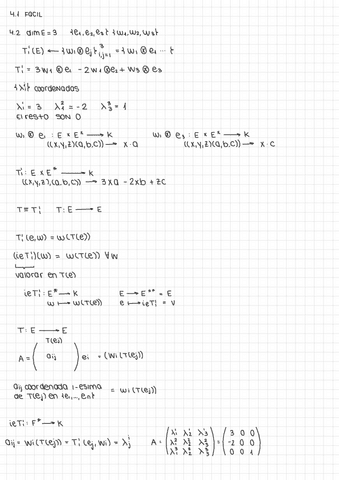 4.1 FACIL
4.2 dim E = 3 {e₁, e₂, e₃} {w₁, w₂, w₃}
T₁¹(E) ← {wᵢ ⊗ eⱼ}³ᵢ,ⱼ₌₁ = {w₁ ⊗ e₁ ... }
T₁¹ = 3w₁ ⊗ e₁ - 2w₁ ⊗ e₂ + w₃ ⊗ e₃
{λᵢʲ} coordenadas
λ₁¹ = 3 λ₁² = -2 λ₃³ = 1
El resto son 0
w₁ ⊗ e₁ : E × E* → K w₃ ⊗ e₃ : E × E* → K
((x,y,z)(a,b,c)) → x·a ((x,y,z)(a,b,c)) → x·c
T₁¹ : E × E* → K
((x,y,z),(a,b,c)) → 3xa - 2xb + zc
T ≡ T₁¹ T: E → E
T₁¹(e,w) = w(T(e))
(ieT₁¹)(w) = w(T(e)) ∀w
valorar en T(e)
ieT₁¹: E* → K E → E** = E
w ↦ w(T(e)) e ↦ ieT₁¹ = v
T: E → E
T(eⱼ)
A = ( aij ) eᵢ = (wᵢ(T(eⱼ))
aij coordenada i-esima = wᵢ(T(eⱼ))
de T(eⱼ) en {e₁, ..., eₙ}
ieT₁¹: F* → K
aij = wᵢ(T(eⱼ)) = T₁¹(eⱼ, wᵢ) = λⱼⁱ A = (λ₁¹ λ₂¹ λ₃¹) = (3 0 0)
(λ₁² λ₂² λ₃²) (-2 0 0)
(λ₁³ λ₂³ λ₃³) (0 0 1)